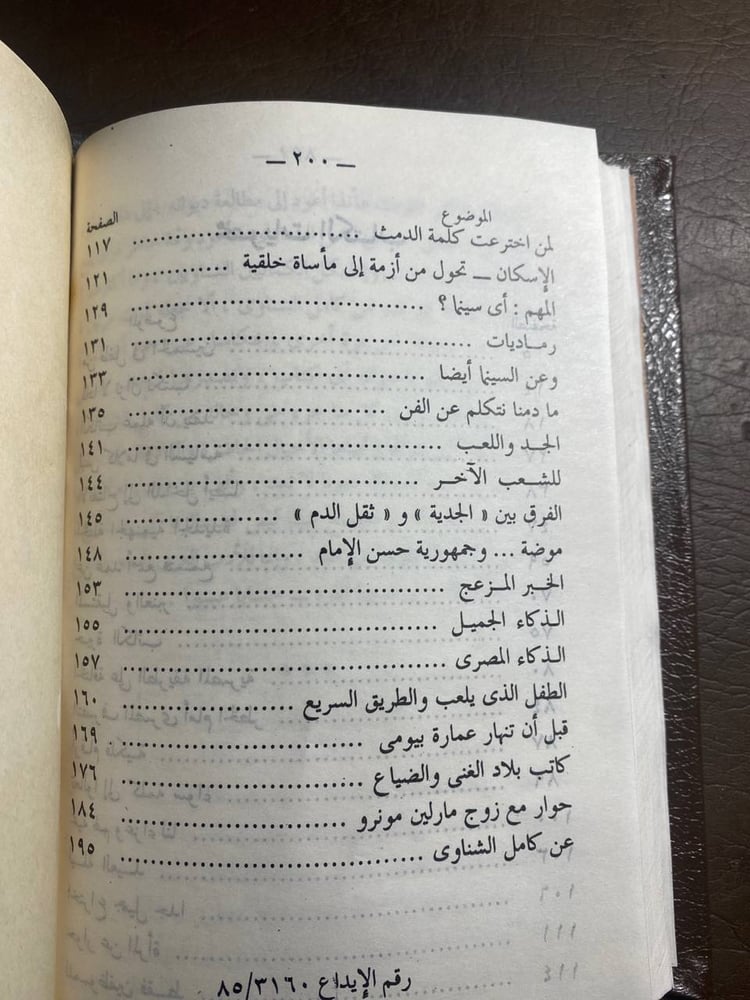 — ٢٠٠ —
الموضوع الصفحة
لمن اخترعت كلمة الدمث ........ ١١٧
الإسكان — تحول من أزمة إلى مأساة خلقية ........ ١٢١
المهم : أى سينما ؟ ........ ١٢٩
رماديات ........ ١٣١
وعن السينما أيضا ........ ١٣٣
ما دمنا نتكلم عن الفن ........ ١٣٥
الجد واللعب ........ ١٤١
للشعب الآخر ........ ١٤٤
الفرق بين « الجدية » و « ثقل الدم » ........ ١٤٥
موضة ... وجمهورية حسن الإمام ........ ١٤٨
الخبر المزعج ........ ١٥٣
الذكاء الجميل ........ ١٥٥
الذكاء المصرى ........ ١٥٧
الطفل الذى يلعب والطريق السريع ........ ١٦٠
قبل أن تنهار عمارة بيومى ........ ١٦٩
كاتب بلاد الغنى والضياع ........ ١٧٦
حوار مع زوج مارلين مونرو ........ ١٨٤
عن كامل الشناوى ........ ١٩٥
رقم الإيداع ٨٥/٣١٦٠